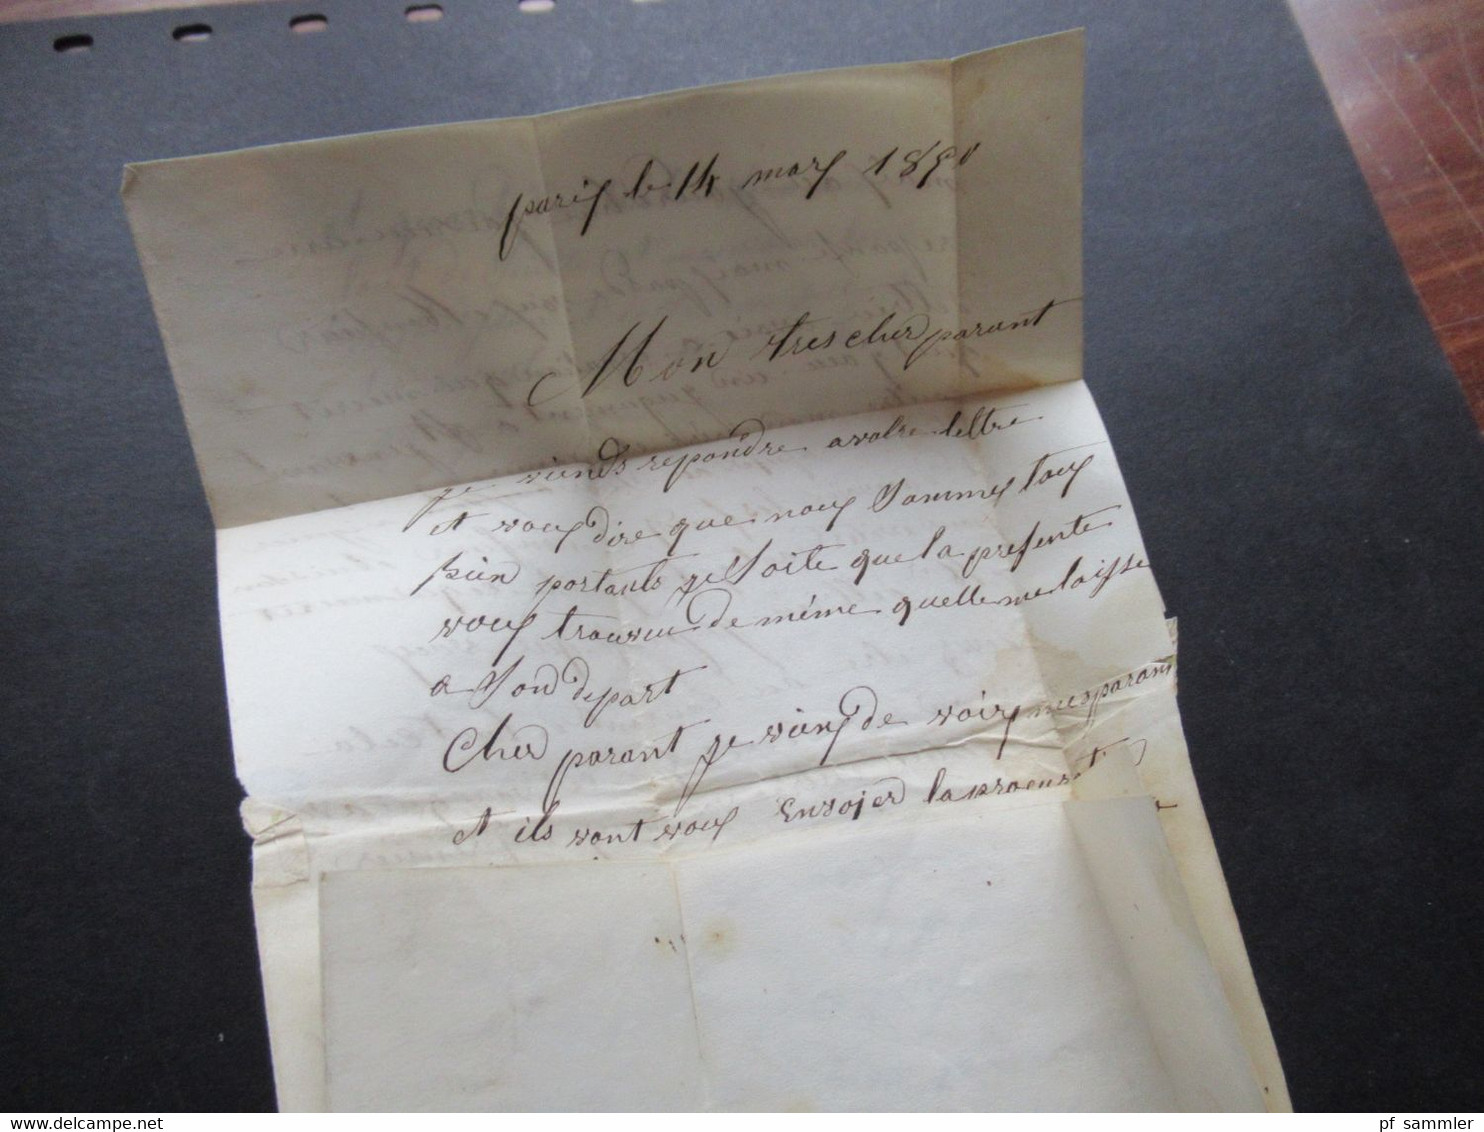 paris le 14 mars 1850
Mon tres cher parant
je viends repondre a votre lettre
et vous dire que nous Sommes tous
bien portants je Soite que la presente
vous trouve de même quelle me laisse
a Son depart
Cher parant je viens de voir mes parans
et ils vont vous Envojer la
pf sammler